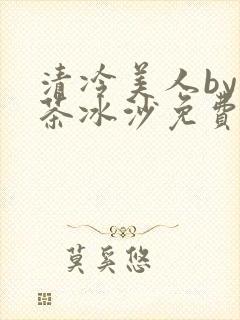 清冷美人by
茶冰沙免費
莫奚悠